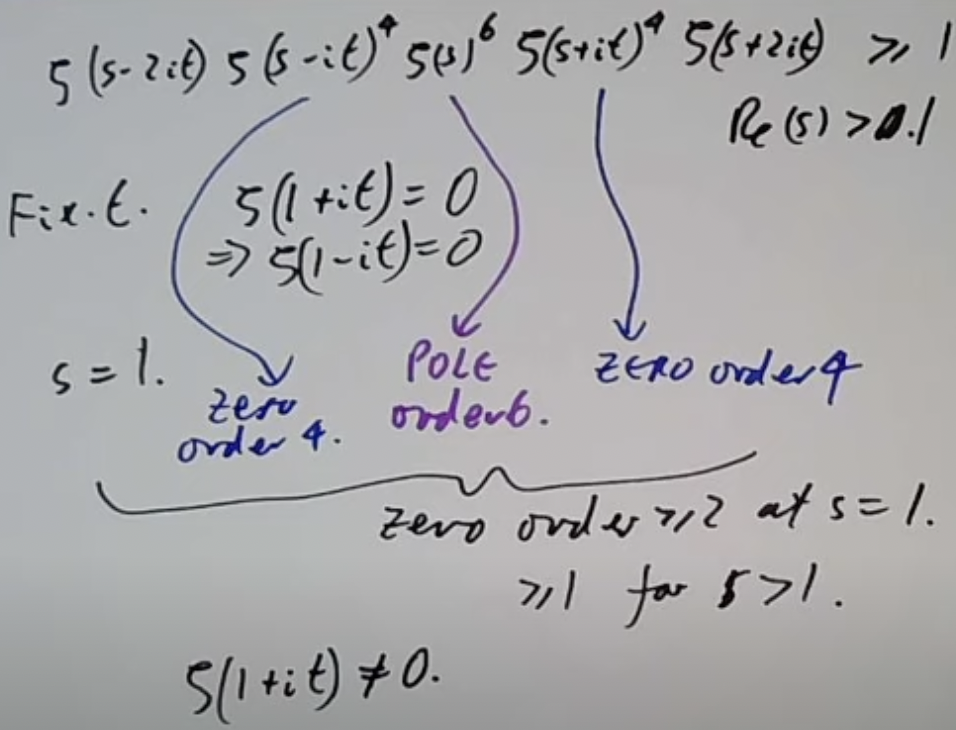 ζ(s-2it) ζ(s-it)⁴ ζ(s)⁶ ζ(s+it)⁴ ζ(s+2it) ⩾ 1
Re(s) > 1
Fix t. ζ(1+it) = 0
⇒ ζ(1-it) = 0
s = 1.
zero order 4.
POLE order 6.
ZERO order 4
zero order ⩾ 2 at s = 1.
⩾ 1 for s > 1.
ζ(1+it) ≠ 0.